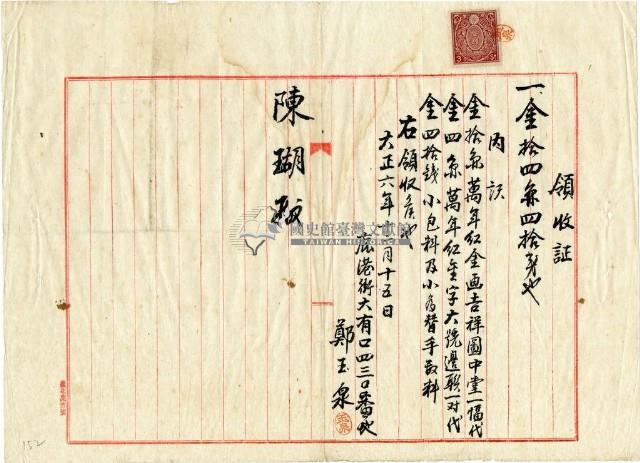 領收証
一金拾四円四拾錢也
內訳
金拾円 萬年紅金画吉祥圖中堂一幅代
金四円 萬年紅金字大號邊聯一对代
金四拾錢 小包料及小為替手數料
右領收候也
大正六年 月十五日
鹿港街大有口四三〇番地
鄭玉泉
陳瑚殿
國史館臺灣文獻館
TAIWAN HISTORICA
3
152